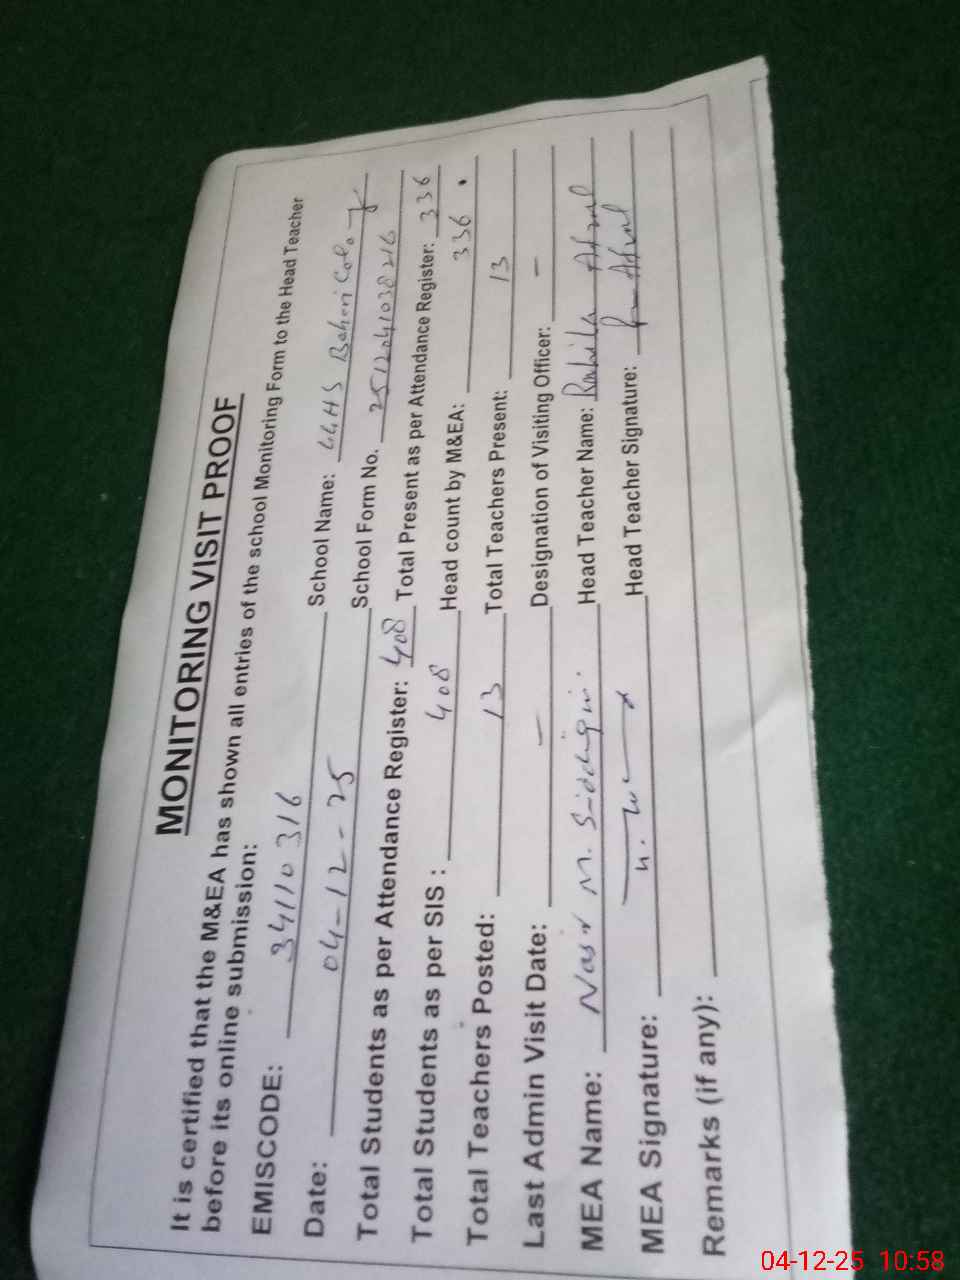 MONITORING VISIT PROOF
It is certified that the M&EA has shown all entries of the school Monitoring Form to the Head Teacher
before its online submission:
EMISCODE: 34110316 School Name: GGHS Colony
Date: 04-12-25 School Form No. 2512041038216
Total Students as per Attendance Register: 408 Total Present as per Attendance Register: 336
Total Students as per SIS : 408 Head count by M&EA: 336
Total Teachers Posted: 13 Total Teachers Present: 13
Last Admin Visit Date: — Designation of Visiting Officer: —
MEA Name: Nasr M. Siddiqui. Head Teacher Name: Rahila Afzal
MEA Signature: Head Teacher Signature: Afzal
Remarks (if any):
04-12-25 10:58